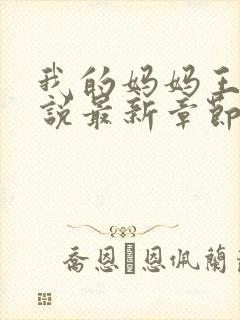 我的妈妈王
說最新章節
喬恩恩佩蘭